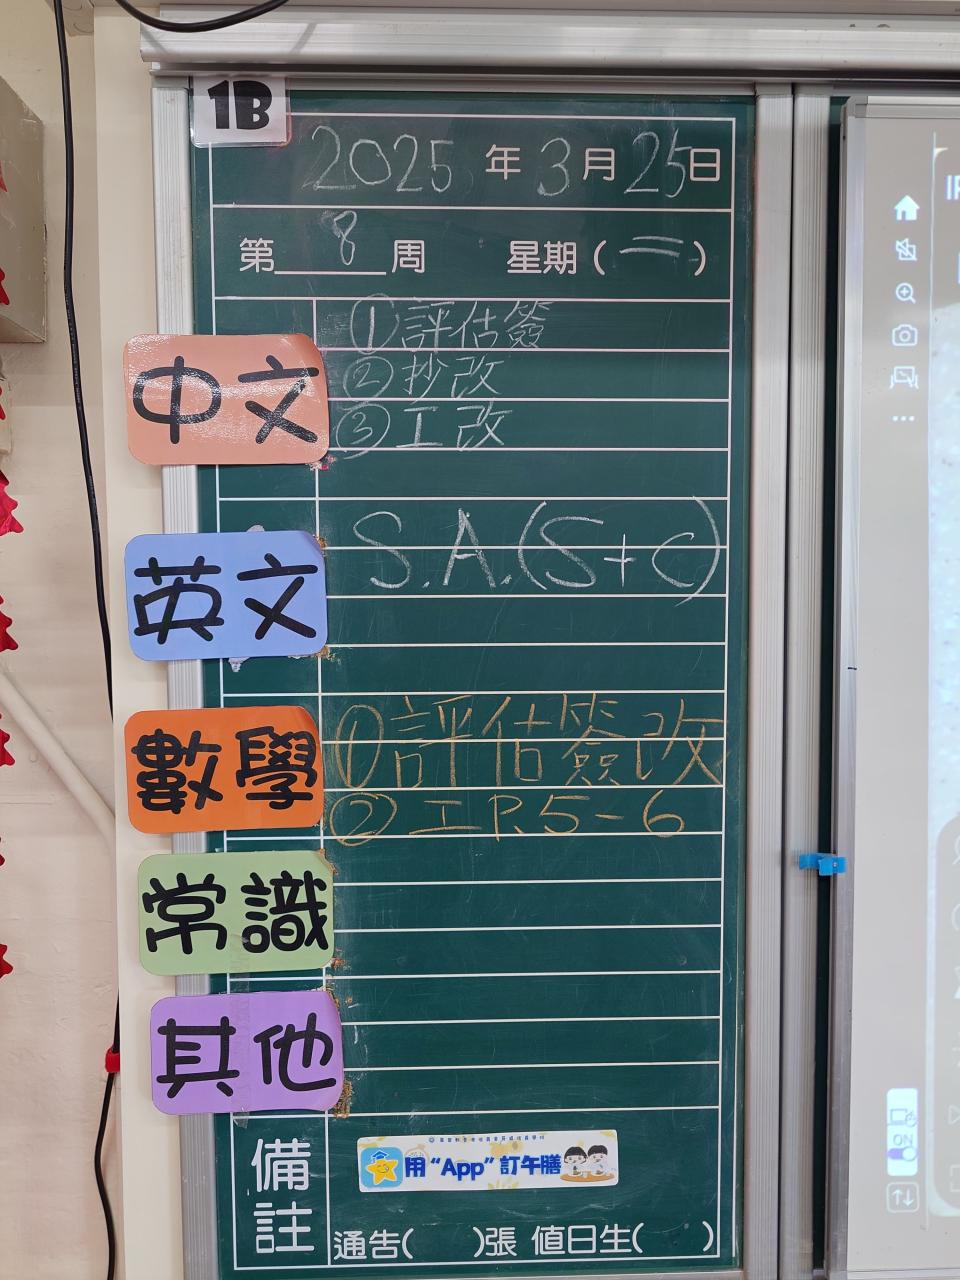 1B
2025 年 3 月 25 日
第 8 周 星期 (二)
中文
①評估簽
②抄改
③工改
英文
S.A.(S+C)
數學
①評估簽改
②工 P.5-6
常識
其他
備註
用 “App” 訂午膳
通告( )張 值日生( )
ON